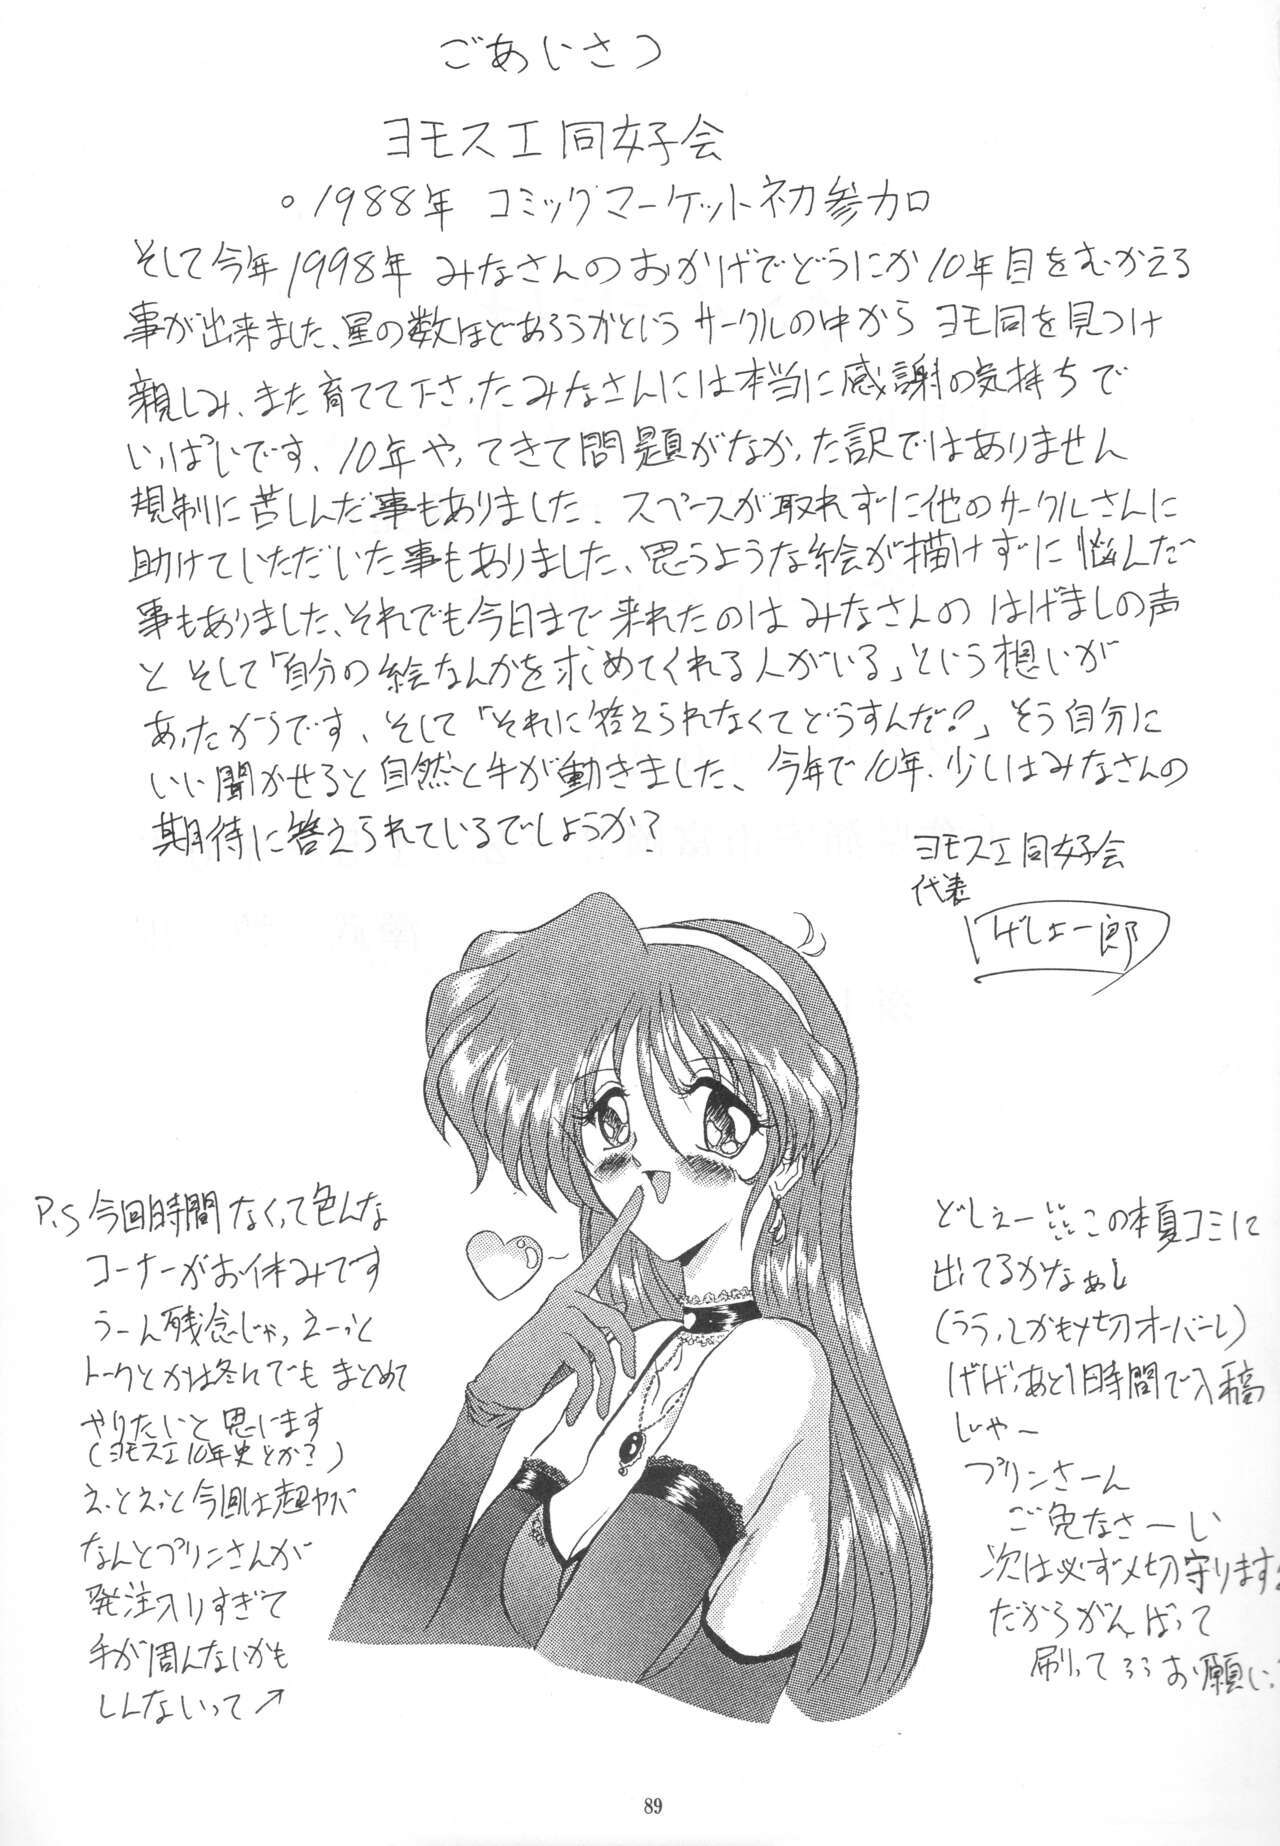 ごあいさつ
ヨモスエ同好会
。1988年 コミックマーケット初参加
そして今年1998年 みなさんのおかげでどうにか10年目をむかえる
事が出来ました、星の数ほどあろうかというサークルの中から ヨモ同を見つけ
親しみ、また育てて下さったみなさんには本当に感謝の気持ちで
いっぱいです、10年やってきて問題がなかった訳ではありません
規制に苦しんだ事もありました、スペースが取れずに他のサークルさんに
助けていただいた事もありました、思うような絵が描けずに悩んだ
事もありました、それでも今日まで来れたのは みなさんの はげましの声
と そして「自分の絵なんかを求めてくれる人がいる」という想いが
あったからです、そして「それに答えられなくてどうすんだ?」そう自分に
いい聞かせると自然と手が動きました、今年で10年、少しはみなさんの
期待に答えられているでしょうか?
ヨモスエ同好会
代表
げしょ一郎
P.S 今回時間なくって色んな
コーナーがお休みです
うーん残念じゃっ えーっと
トークとかは冬にでもまとめて
やりたいと思います
(ヨモスエ10年史とか?)
えっとえっと今回は超ヤバ
なんとプリンさんが
発注入りすぎて
手が周んないかも
しんないって→
どしぇー この本夏コミに
出てるかなぁ
(ううっしかも〆切オーバーし)
げげっあと1時間で入稿
じゃー
プリンさーん
ご免なさーい
次は必ず〆切守ります
だからがんばって
刷って お願い
89